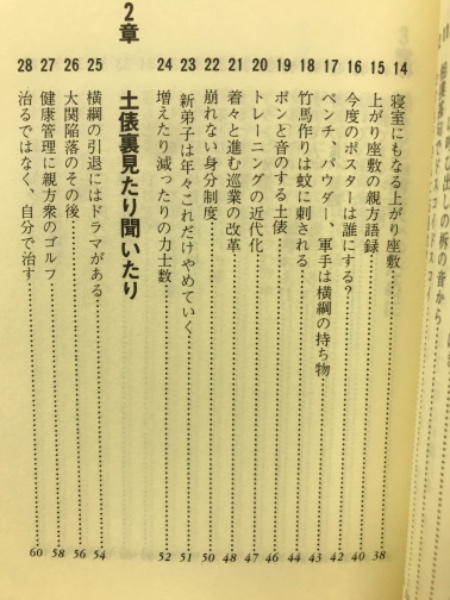 14 寝室にもなる上がり座敷 38
15 上がり座敷の親方語録 40
16 今度のポスターは誰にする? 42
17 ペンチ、パウダー、軍手は横綱の持ち物 43
18 竹馬作りは蚊に刺される 44
19 ポンと音のする土俵 46
20 トレーニングの近代化 47
21 着々と進む巡業の改革 48
22 崩れない身分制度 50
23 新弟子は年々これだけやめていく 51
24 増えたり減ったりの力士数 52
2章 土俵裏見たり聞いたり
25 横綱の引退にはドラマがある 54
26 大関陥落のその後 56
27 健康管理に親方衆のゴルフ 58
28 治るではなく、自分で治す 60